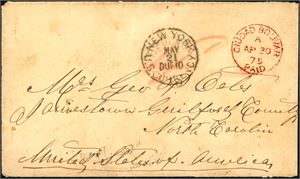 NEW YORK
MAY
CIUDAD BOLIVAR
A
AP 30
75
PAID
Mrs Geo
Jamestown Guilford County
North Carolin
United States of America